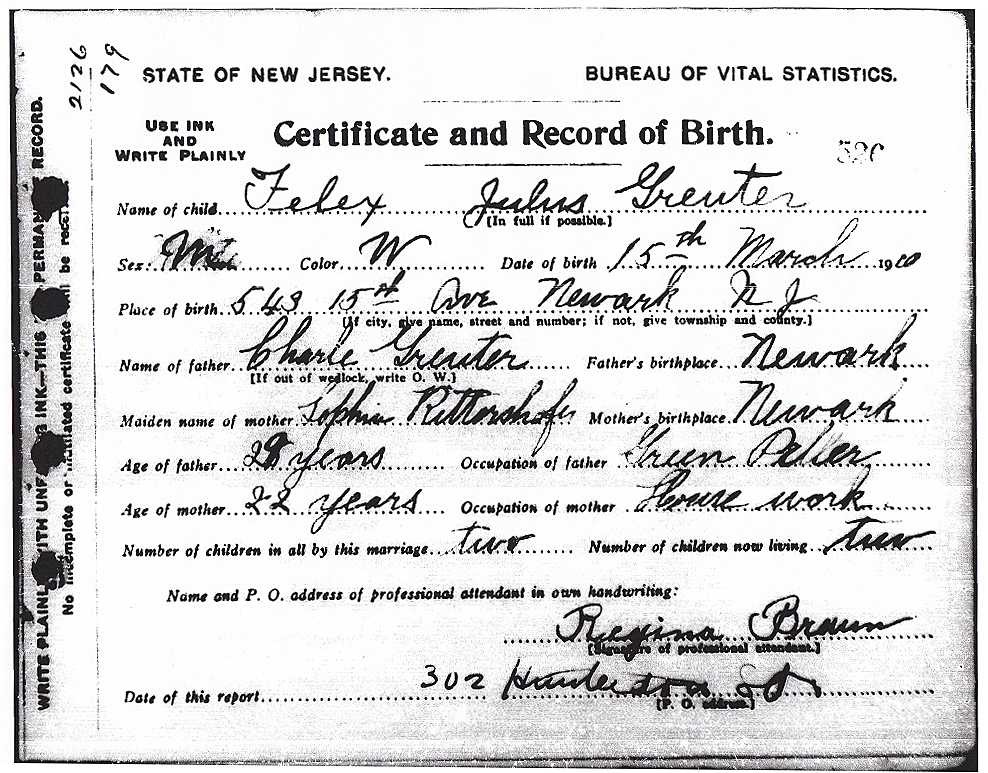 2126
179
STATE OF NEW JERSEY. BUREAU OF VITAL STATISTICS.
USE INK AND WRITE PLAINLY
Certificate and Record of Birth.
Name of child Felex Julus Greuter
[In full if possible.]
Sex M Color W Date of birth 15th March 1910
Place of birth 543 15th Ave Newark N J
[If city, give name, street and number; if not, give township and county.]
Name of father Charle Greuter Father's birthplace Newark
[If out of wedlock, write O. W.]
Maiden name of mother Sophia Rittershofer Mother's birthplace Newark
Age of father 28 years Occupation of father
Age of mother 22 years Occupation of mother House work
Number of children in all by this marriage two Number of children now living two
Name and P. O. address of professional attendant in own handwriting:
Regina Braun
[Signature of professional attendant.]
Date of this report 302
[P. O. address.]
WRITE PLAINLY WITH INK—THIS PERMANENT RECORD.
No incomplete or mutilated certificate will be